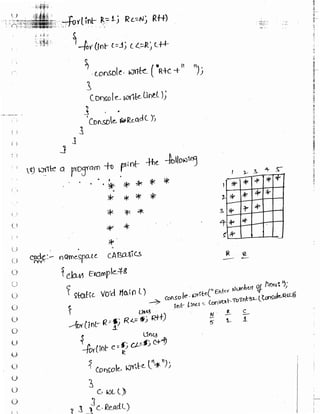 for(int R=1; R<=N; R++)
{
for(int C=1; C<=R; C++)
{
console.write("R+C+" ");
}
Console.WriteLine();
}
Console.ReadL();
}
}
15) write a program to print the following
* * * * *
* * * *
* * *
* *
*
1 2 3 4 5
1 * * * * *
2 * * * *
3 * * *
4 * *
5 *
code:- namespace CABasics
{ class Example78
{ static void Main()
→ console.write("Enter number of lines");
int Lines = Convert.ToInt32(Console.ReadL
for(int R= ; R<= ; R++)
Lines
N R C
5 1 1
{
for(int C= ; C<= ; C++)
{
console.write("*");
}
C.WL()
}
} } } C.ReadL()